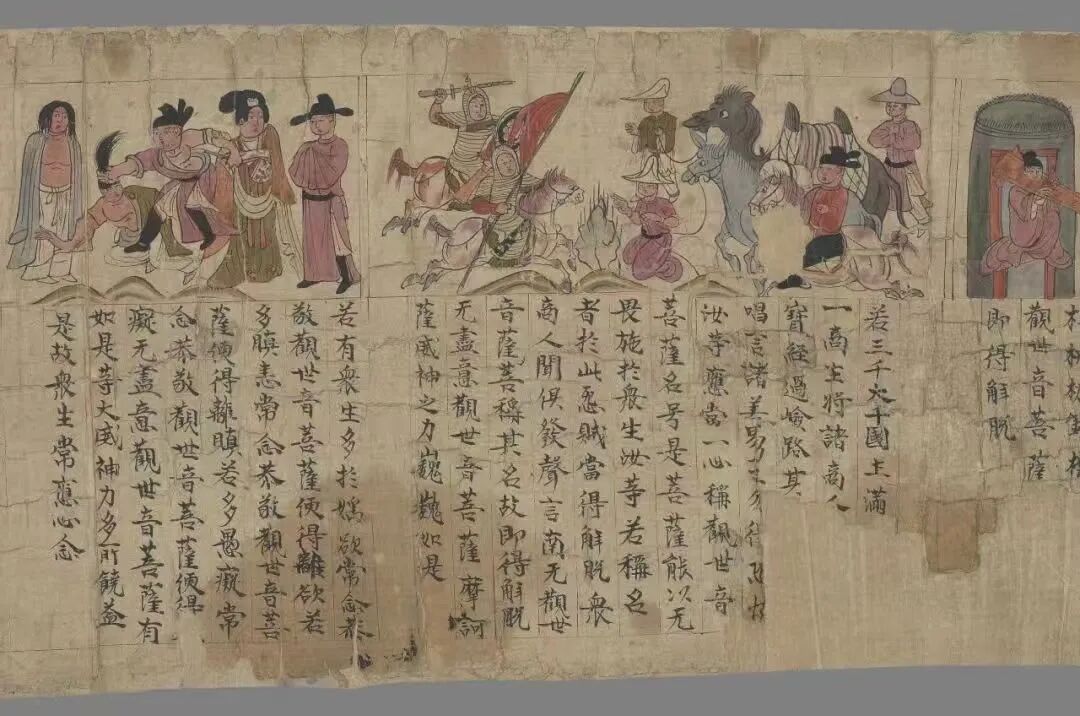 觀世音菩薩
即得解脫
若三千大千國土滿
一商主將諸商人
寶經過嶮路其
唱言諸善男子勿得恐怖
汝等應當一心稱觀世音
菩薩名号是菩薩能以无
畏施於衆生汝等若稱名
者於此怨賊當得解脫衆
商人聞俱發聲言南无觀世
音薩菩稱其名故即得解脫
无盡意觀世音菩薩摩訶
薩威神之力巍巍如是
若有衆生多於婬欲常念恭
敬觀世音菩薩便得離欲若
多瞋恚常念恭敬觀世音菩
薩便得離瞋若多愚癡常
念恭敬觀世音菩薩便得
癡无盡意觀世音菩薩有
如是等大威神力多所饒益
是故衆生常應心念